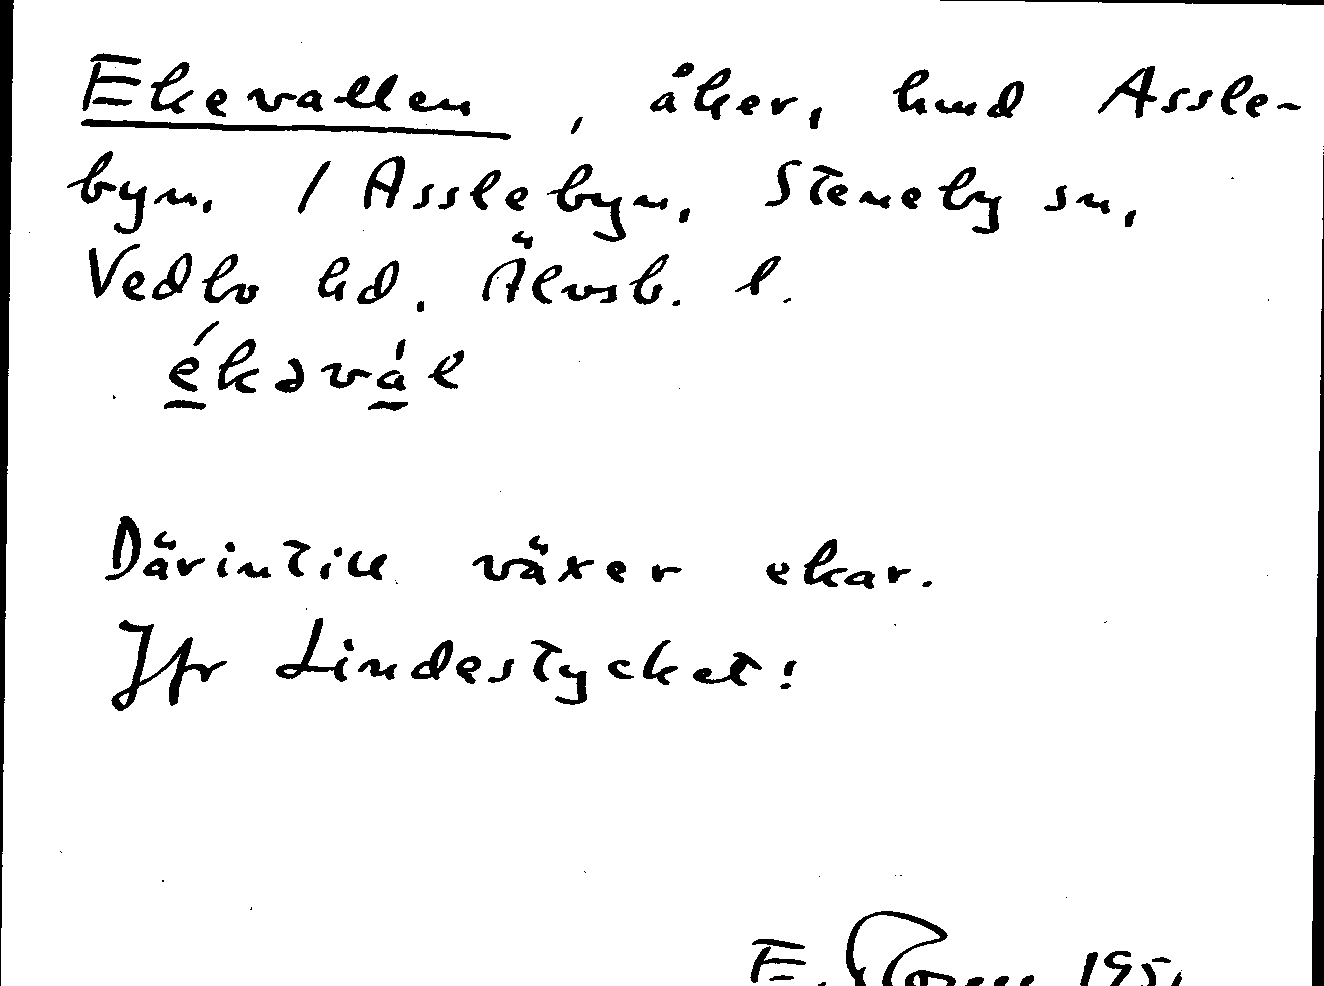 Ekevallen, åker, hmd Assle-
byn. / Asslebyn, Steneby sn,
Vedbo hd. Älvsb. l.
ékəvál
Därintill växer ekar.
Jfr Lindestycket!
E.